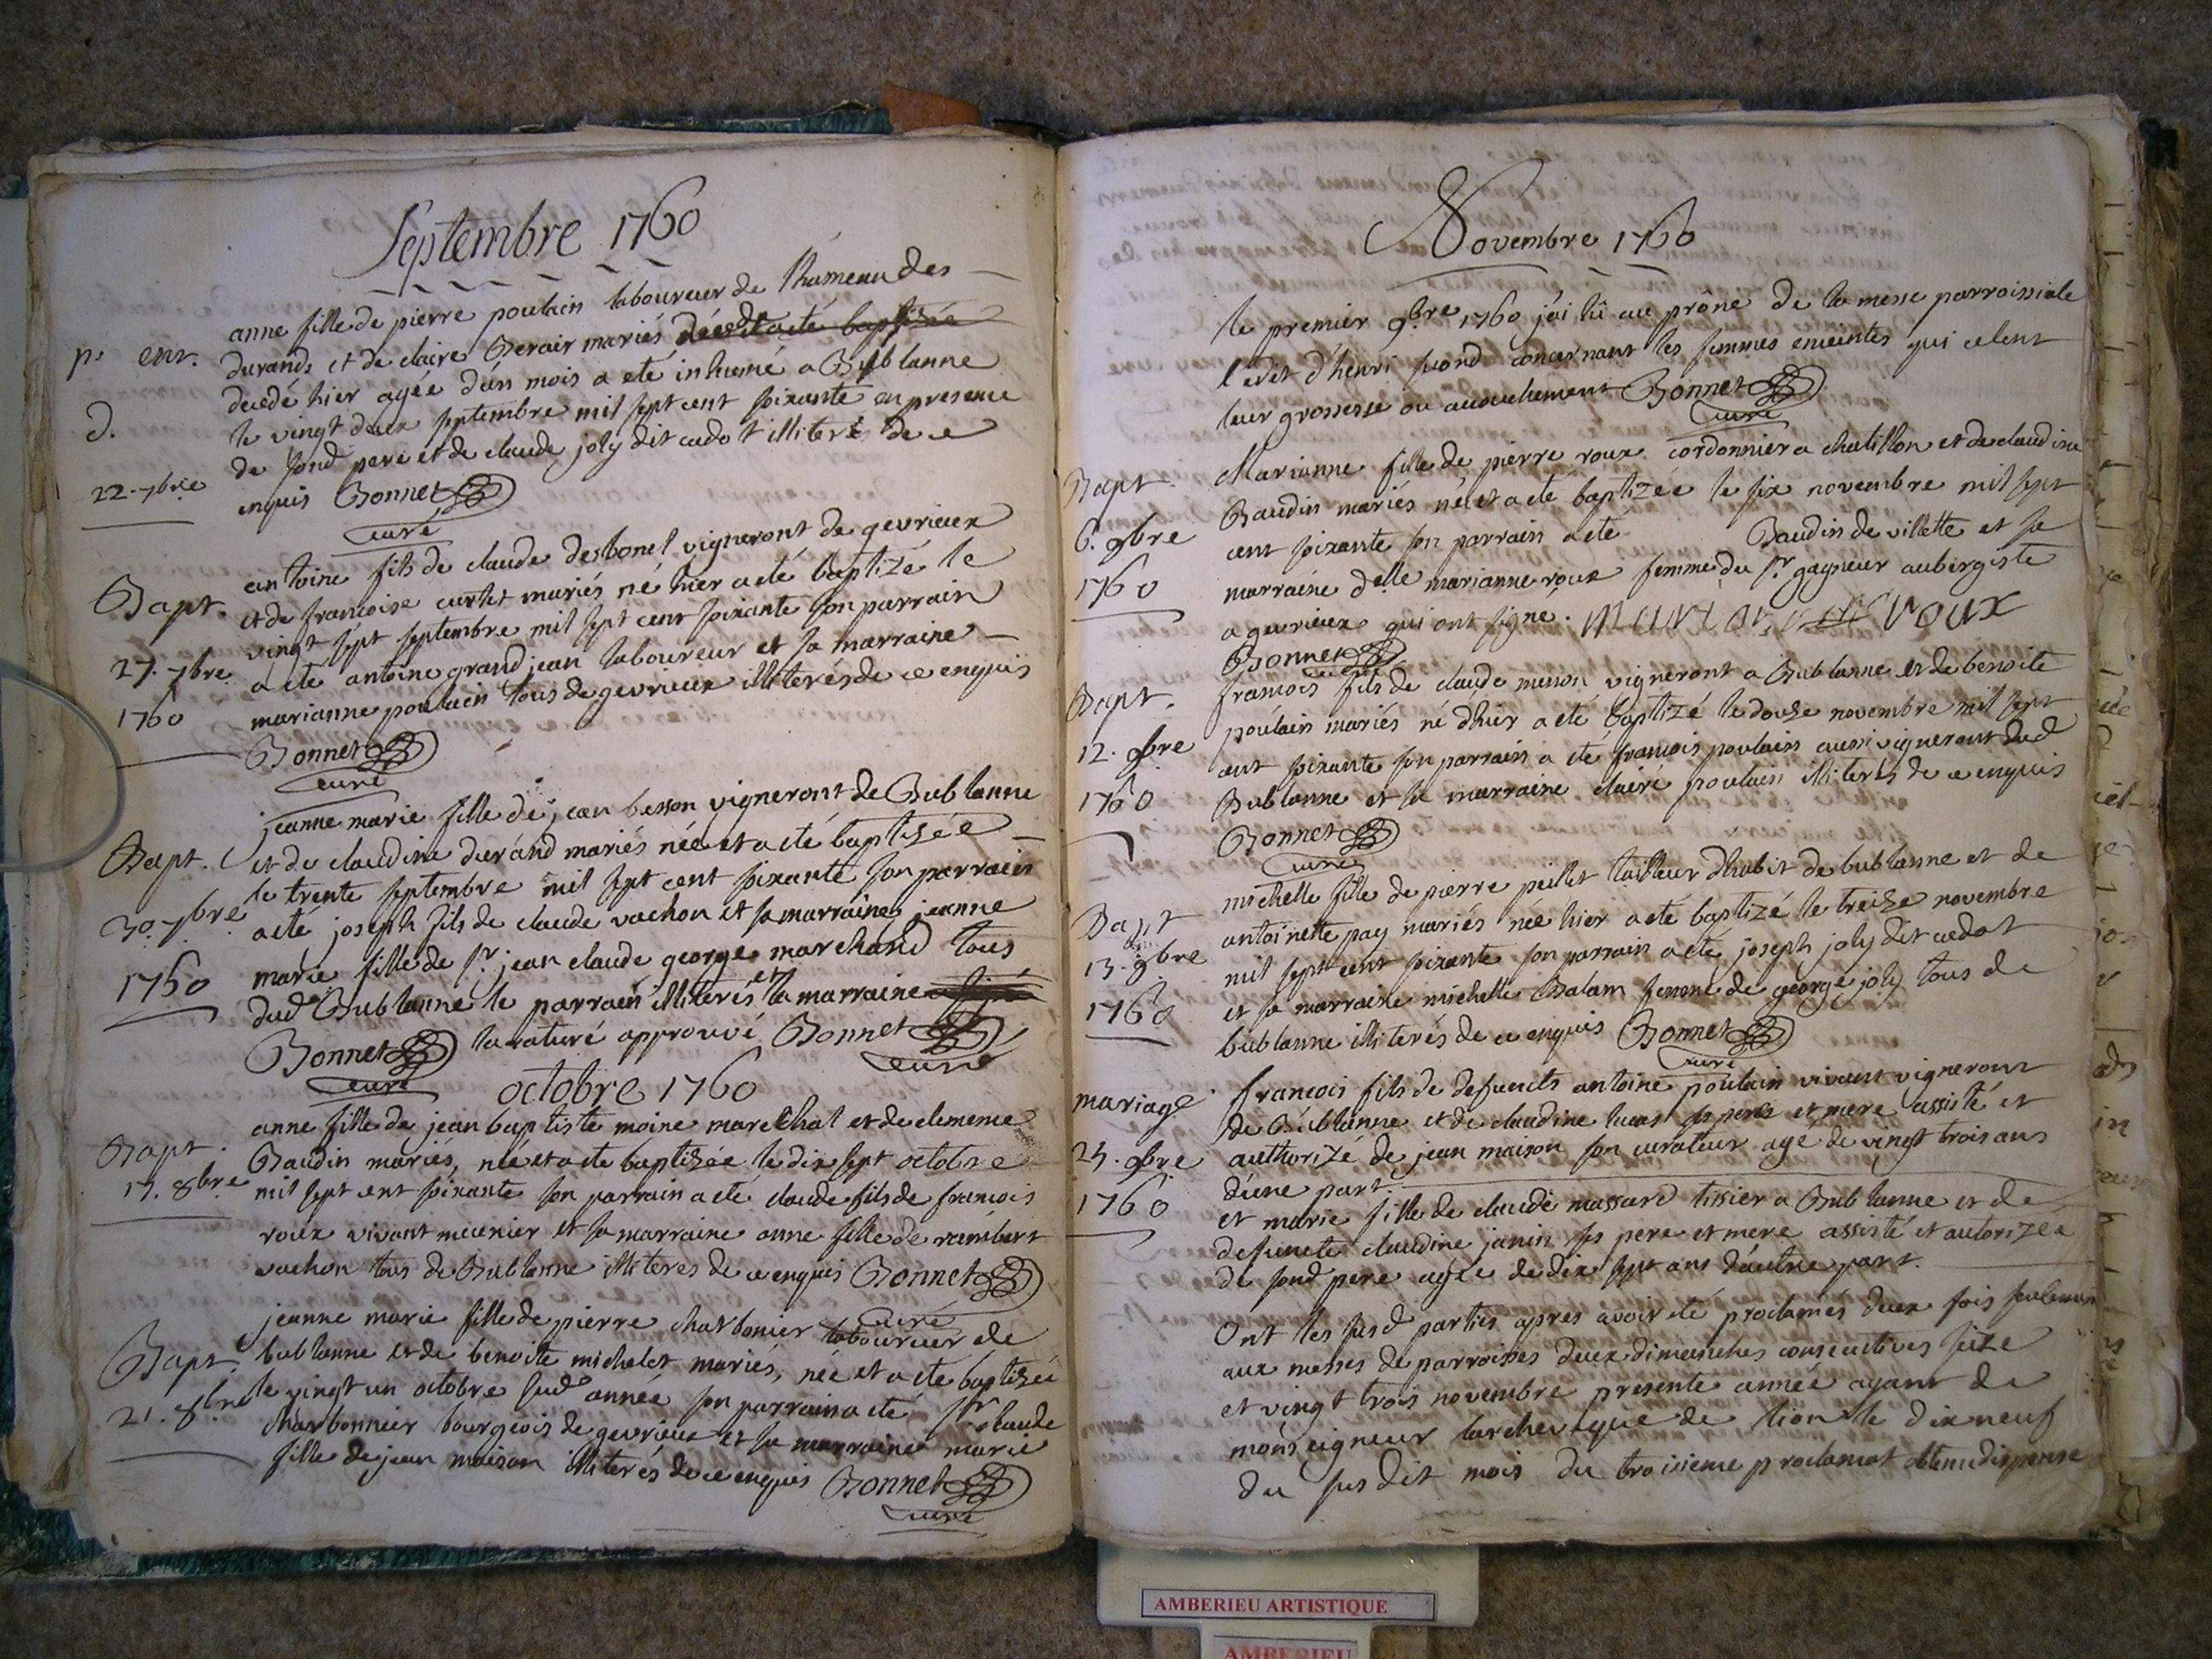 Septembre 1760
anne fille de pierre poulain laboureur de l'hameau des
pt enr. durands et de claire Berair mariés
decedé hier agée d'un mois a eté inhumé a Bublanne
d. le vingt deux septembre mil sept cent soixante en presence
de sond pere et de claude joly dit cadot illiterés de ce
22. 7bre enquis Bonnet
curé
antoine fils de claude desbonel vigneront de gevrieux
Bapt. et de francoise curtet mariés né hier a eté baptizé le
vingt sept septembre mil sept cent soixante son parrain
27. 7bre a eté antoine grand jean laboureur et sa marraine
1760 marianne poulain tous de gevrieux illiterés de ce enquis
Bonnet
curé
jeanne marie fille de jean besson vigneront de Bublanne
Bapt. et de claudine durand mariés née et a eté baptizée
le trente septembre mil sept cent soixante son parrain
30. 7bre a eté joseph fils de claude vachon et sa marraine jeanne
marie fille de sr jean claude george marchand tous
1760 dud Bublanne le parrain illiterés et la marraine
Bonnet la raturé approuvé Bonnet
curé curé
octobre 1760
anne fille de jean baptiste moine marechal et de clemence
Bapt. Baudin mariés, née et a eté baptizée le dix sept octobre
17. 8bre mil sept cent soixante son parrain a eté claude fils de francois
roux vivant meunier et sa marraine anne fille de rambert
vachon tous de Bublanne illiteres de ce enquis Bonnet
curé
jeanne marie fille de pierre charbonier laboureur de
Bapt. bublanne et de benoite michelet mariés, née et a eté baptisée
le vingt un octobre sud année son parrain a eté sr claude
21. 8bre charbonnier bourgeois de gevrieux et sa marraine marie
fille de jean maison illiterés de ce enquis Bonnet
curé
Novembre 1760
le premier 9bre 1760 j'ai lû au prône de la messe parroissiale
l'edit d'henri second concernant les femmes enceintes qui celent
leur grossesse ou accouchement Bonnet
curé
Bapt. Marianne fille de pierre roux cordonnier a chatillon et de claudine
Baudin mariés né et a eté baptizée le six novembre mil sept
6. 9bre cent soixante son parrain a eté Baudin de villette et sa
1760 marraine delle marianne roux femme du sr gagneur aubergiste
a gevrieux qui ont signé. roux
Bonnet
curé
Bapt. francois fils de claude menon vigneront a Bublanne et de benoite
poulain mariés né d'hier a eté baptizé le douze novembre mil sept
12. 9bre cent soixante son parrain a eté francois poulain aussi vigneront dud
1760 Bublanne et sa marraine claire poulain illiterés de ce enquis
Bonnet
curé
michelle fille de pierre peillet tailleur d'habit de bublanne et de
Bapt antoinette pay mariés née hier a eté baptizé le treize novembre
13. 9bre mil sept cent soixante son parrain a eté joseph joly dit cadot
1760 et sa marraine michelle Balam femme de george joly tous de
bublanne illiterés de ce enquis Bonnet
curé
mariage francois fils de defuncts antoine poulain vivant vigneront
de Bublanne et de claudine lucas ses peres et mere assisté et
25. 9bre authorizé de jean maison son curateur agé de vingt trois ans
1760 d'une part.
et marie fille de claude massard tissier a Bublanne et de
defuncte claudine janin ses pere et mere assisté et autorizée
de sond pere agée de dix sept ans d'autre part.
Ont les susd parties apres avoir eté proclamés deux fois seulement
aux messes de parroisses deux dimanches consecutives seize
et vingt trois novembre presente année ayant de
monseigneur l'archeveque de lion le dix neuf
du susdit mois du troisieme proclamat obtenu dispense
AMBERIEU ARTISTIQUE
AMBERIEU